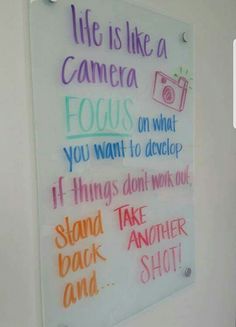 life is like a
camera
FOCUS on what
you want to develop
if things don't work out,
stand back and... TAKE ANOTHER SHOT!